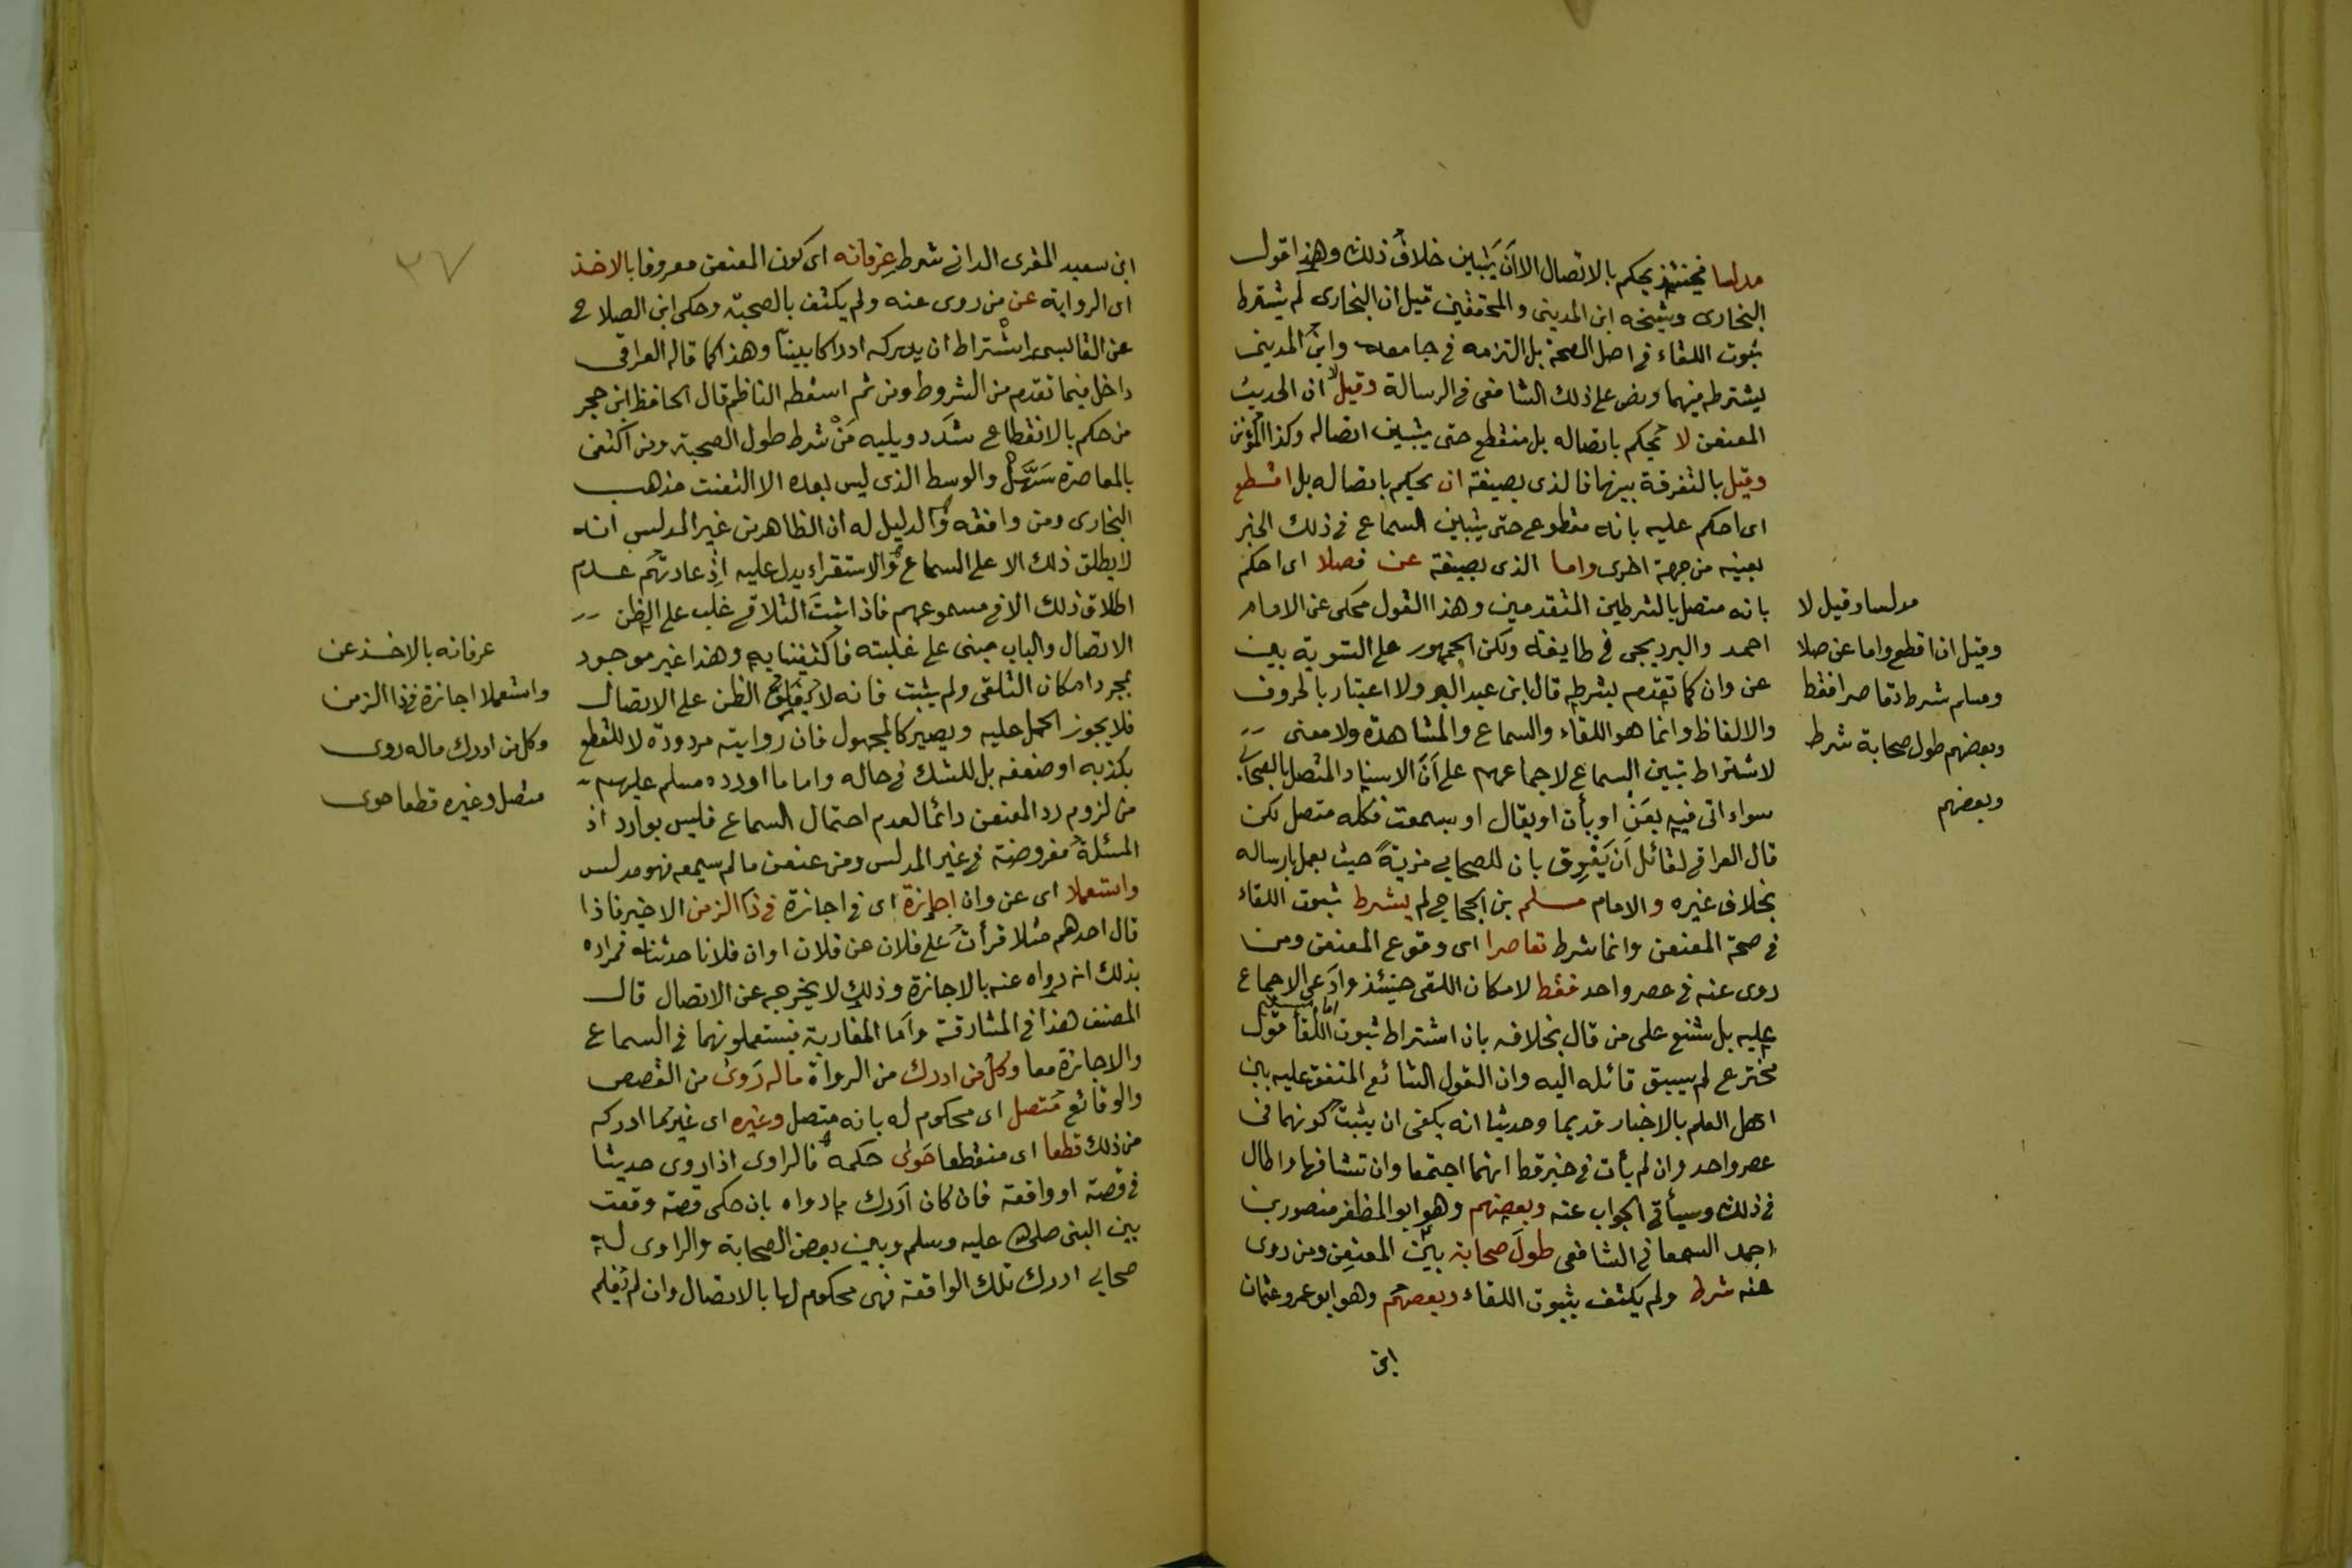 مدلسا فحينئذ يحكم بالاتصال الا أن يتبين خلاف ذلك وهذا قول
البخارى وشيخه ابن المدينى والمحققين قيل ان البخارى لم يشترط
ثبوت اللقاء فى اصل الصحة بل التزمه فى جامعه وابن المدينى
يشترطه فيهما ونص على ذلك الشافعى فى الرسالة وقيل لا ان الحديث
المعنعن لا يحكم باتصاله بل منقطع حتى يتبين اتصاله وكذا المؤنن
وقيل بالتفرقة بينهما فالذى بصيغة ان يحكم باتصاله بل اقطع
اى احكم عليه بانه مقطوع حتى يتبين السماع فى ذلك الخبر
بعينه من جهة اخرى واما الذى بصيغة عن فصلا اى احكم
بانه متصل بالشرطين المتقدمين وهذا القول محكى عن الامام
احمد والبرديجى فى طايفة ولكن الجمهور على التسوية بين
عن وان كما تقدم بشرطه قال ابن عبد البر ولا اعتبار بالحروف
والالفاظ وانما هو اللقاء والسماع والمشاهدة ولا معنى
لاشتراط تبين السماع لاجماعهم على أن الاسناد المتصل بالصحابى
سواء اتى فيه بعن او بأن او بقال او بسمعت فكله متصل لكن
قال العراقى لقائل أن يفرق بان للصحابى مزية حيث يعمل بارساله
بخلاف غيره والامام مسلم بن الحجاج لم يشرط ثبوت اللقاء
فى صحة المعنعن وانما شرط تعاصرا اى وقوع المعنعن ومن
روى عنه فى عصر واحد فقط لامكان اللقى حينئذ وادعى الاجماع
عليه بل شنع على من قال بخلافه بان اشتراط ثبوت اللقا قول
مخترع لم يسبق قائله اليه وان القول الشائع المتفق عليه بين
اهل العلم بالاخبار قديما وحديثا انه يكفى ان يثبت كونهما فى
عصر واحد وان لم يأت فى خبر قط انهما اجتمعا وان تشافها واطال
فى ذلك وسيأتى الجواب عنه وبعضهم وهو ابو المظفر منصور بن
احمد السمعانى الشافعى طول صحابة بين المعنعن ومن روى
عنه شرط ولم يكتف بثبوت اللقاء وبعضهم وهو ابو عمرو عثمان
ابن
مدلسا وقيل لا
وقيل ان اقطع واما عن صلا
ومسلم شرط تعاصرا فقط
وبعضهم طول صحابة شرط
وبعضهم
٣٧
ابن سعيد المقرى الدانى شرط عرفانه اى كون المعنعن معروفا بالاخذ
اى الرواية عن من روى عنه ولم يكتف بالصحبة وحكى ابن الصلاح
عن القابسى اشتراط ان يدركه ادراكا بينا وهذا كما قاله العراقى
داخل فيما تقدم من الشروط ومن ثم اسقطه الناظم قال الحافظ ابن حجر
من حكم بالانقطاع شدد ويليه من شرط طول الصحبة ومن اكتفى
بالمعاصرة سهل والوسط الذى ليس بعده الا التعنت مذهب
البخارى ومن وافقه والدليل له ان الظاهر من غير المدلس انه
لا يطلق ذلك الا على السماع والاستقراء يدل عليه اذ عادتهم عدم
اطلاق ذلك الا فى مسموعهم فاذا ثبت التلاقى غلب على الظن
الاتصال والباب مبنى على غلبته فاكتفينا به وهذا غير موجود
بمجرد امكان التلقى ولم يثبت فانه لا يغلب الظن على الاتصال
فلا يجوز الحمل عليه ويصير كالمجهول فان روايته مردودة لا للقطع
بكذبه او ضعفه بل للشك فى حاله واما ما اورده مسلم عليهم
من لزوم رد المعنعن دائما لعدم احتمال السماع فليس بوارد اذ
المسئلة مفروضة فى غير المدلس ومن عنعن ما لم يسمعه فهو مدلس
واستعملا اى عن وان اجازة اى فى اجازة فى ذا الزمن الاخير فاذا
قال احدهم مثلا قرأت على فلان عن فلان او ان فلانا حدثنا فمراده
بذلك انه رواه عنه بالاجازة وذلك لا يخرجه عن الاتصال قال
المصنف هذا فى المشارقة واما المغاربة فيستعملونهما فى السماع
والاجازة معا وكل من ادرك من الرواة ماله روى من القصص
والوقائع متصل اى محكوم له بانه متصل وغيره اى غير ما ادركه
من ذلك قطعا اى منقطعا حوى حكمه فالراوى اذا روى حديثا
فى قصة او واقعة فان كان أدرك ما رواه بان حكى قصة وقعت
بين النبى صلى الله عليه وسلم وبين بعض الصحابة والراوى له
صحابى ادرك تلك الواقعة فهى محكوم لها بالاتصال وان لم يعلم
عرفانه بالاخذ عن
واستعملا اجازة فى ذا الزمن
وكل من ادرك ماله روى
متصل وغيره قطعا حوى